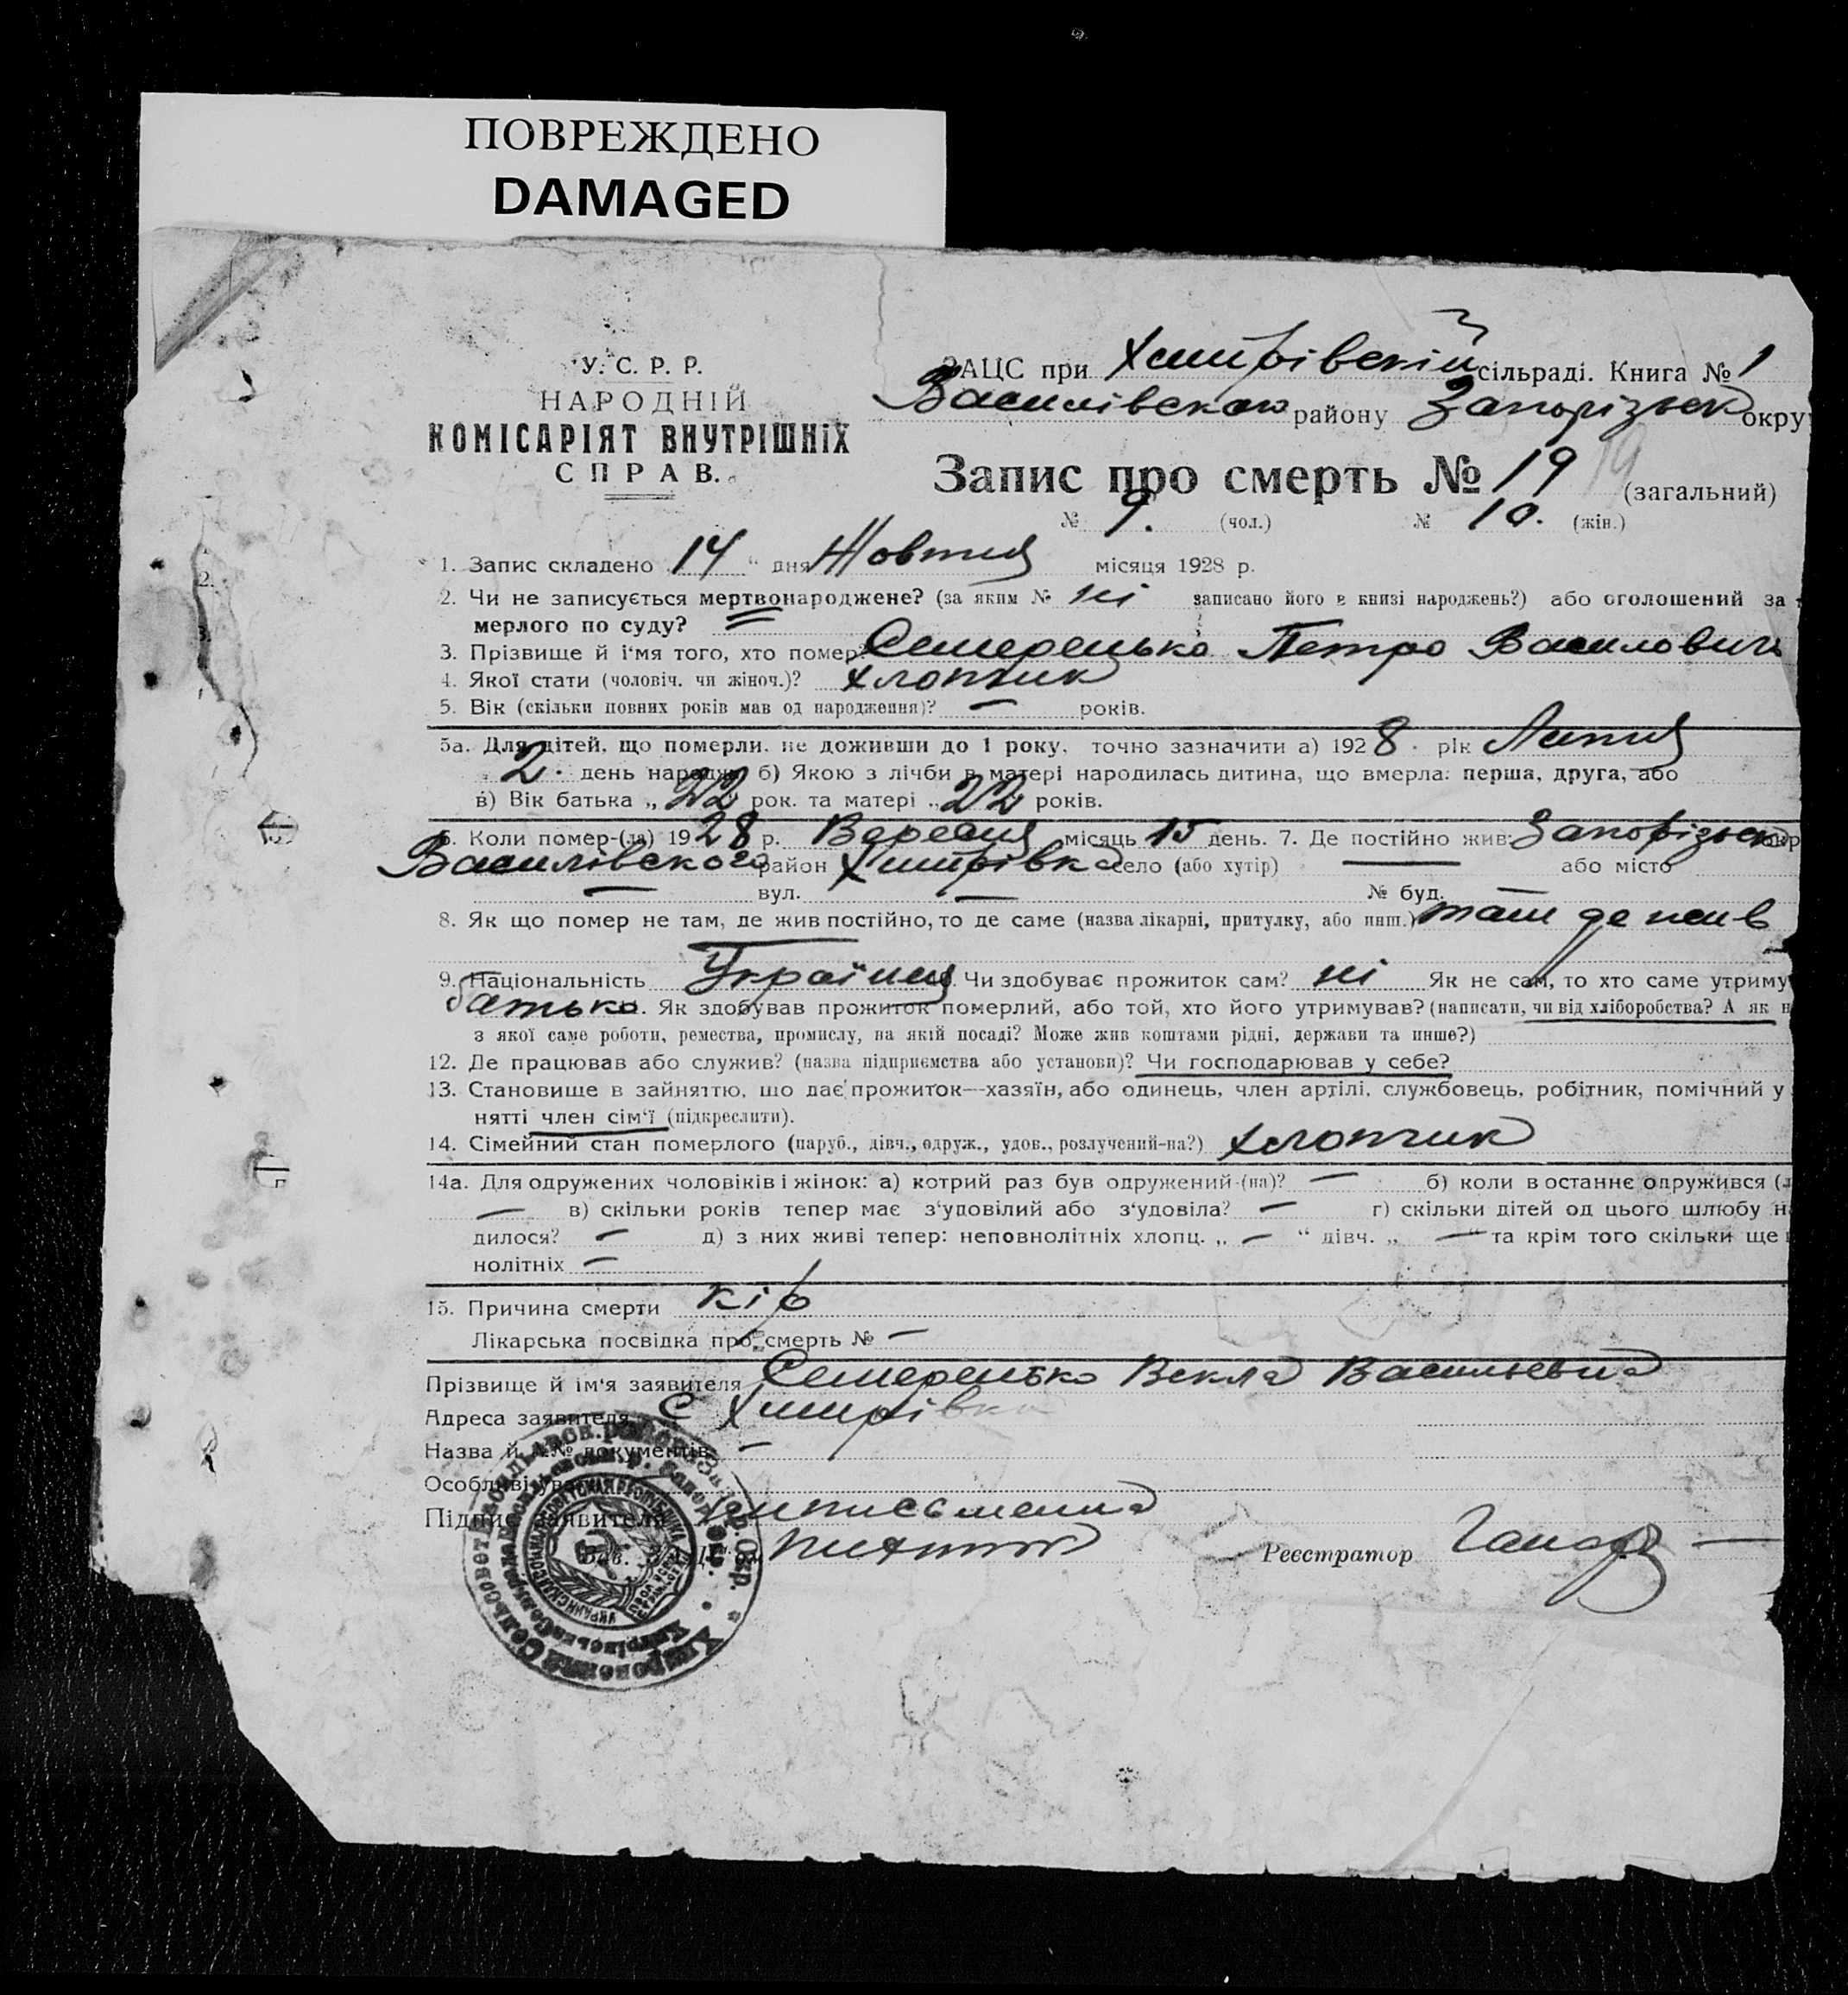 ПОВРЕЖДЕНО
DAMAGED
У. С. Р. Р.
НАРОДНІЙ
КОМІСАРІЯТ ВНУТРІШНІХ
СПРАВ.
ЗАЦС при Хмирівській сільраді. Книга № 1
Василівского району Запорізьск окру
Запис про смерть № 19 19 (загальний)
№ 9. (чол.) № 10. (жін.)
1. Запис складено 14 " дня Жовтня місяця 1928 р.
2. Чи не записується мертвонароджене? (за яким № ні записано його в книзі народжень?) або оголошений за
мерлого по суду?
3. Прізвище й і'мя того, хто помер? Семеренько Петро Василович
4. Якої стати (чоловіч. чи жіноч.)? хлопчик
5. Вік (скільки повних років мав од народження)? — років.
5а. Для дітей, що померли, не доживши до 1 року, точно зазначити а) 1928 рік Липня
2. день народж б) Якою з лічби в матері народилась дитина, що вмерла: перша, друга, або
в) Вік батька „ 22 " рок. та матері „ 22 років.
6. Коли помер-(ла) 1928 р. Вересня місяць 15 день. 7. Де постійно жив: Запорізьск окр
Василівского район Хмирівка село (або хутір) — або місто
— вул. — № буд. —
8. Як що помер не там, де жив постійно, то де саме (назва лікарні, притулку, або инш.) там де жив
9. Національність Українец Чи здобуває прожиток сам? ні Як не сам, то хто саме утриму
батько. Як здобував прожиток померлий, або той, хто його утримував? (написати, чи від хліборобства? А як н
з якої саме роботи, ремества, промислу, на якій посаді? Може жив коштами рідні, держави та инше?)
12. Де працював або служив? (назва підприємства або установи)? Чи господарював у себе?
13. Становище в зайняттю, що дає прожиток—хазяїн, або одинець, член артілі, службовець, робітник, помічний у
нятті член сім'ї (підкреслити).
14. Сімейний стан померлого (паруб., дівч., одруж., удов., розлучений-на?) хлопчик
14а. Для одружених чоловіків і жінок: а) котрий раз був одружений-(на)? — б) коли в останнє одружився (л
— в) скільки років тепер має з'удовілий або з'удовіла? — г) скільки дітей од цього шлюбу н
дилося? — д) з них живі тепер: неповнолітніх хлопц. „ — " дівч. „ — " та крім того скільки ще
нолітніх —
15. Причина смерти кір
Лікарська посвідка про смерть № —
Прізвище й ім'я заявителя Семеренько Векла Васильевна
Адреса заявителя С Хмирівка
Назва й №№ документів —
Особливі
Підпис заявителя неписьменна
Реєстратор